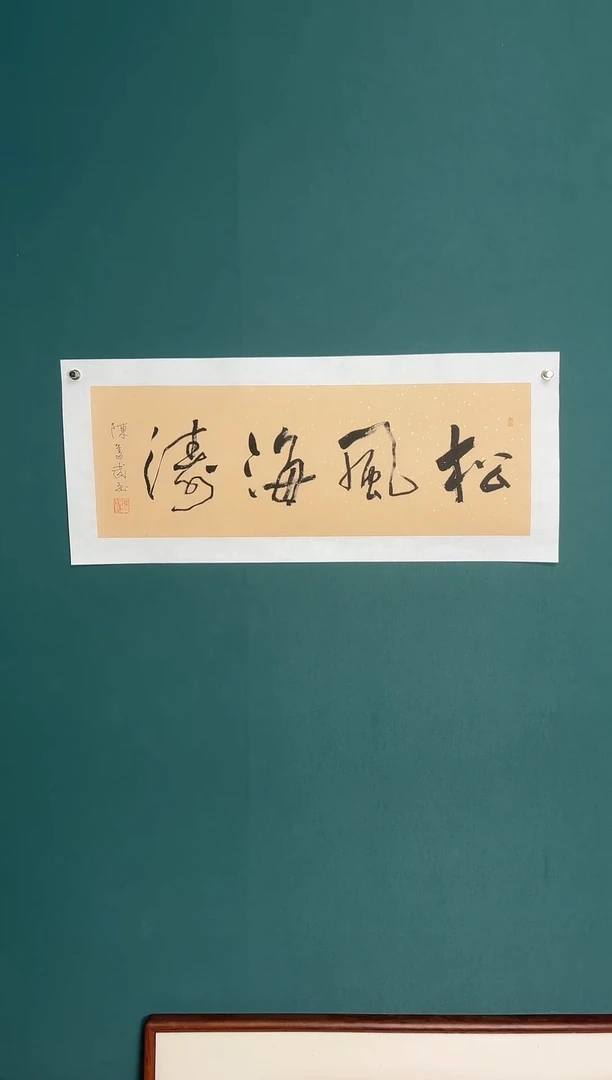 松風海濤